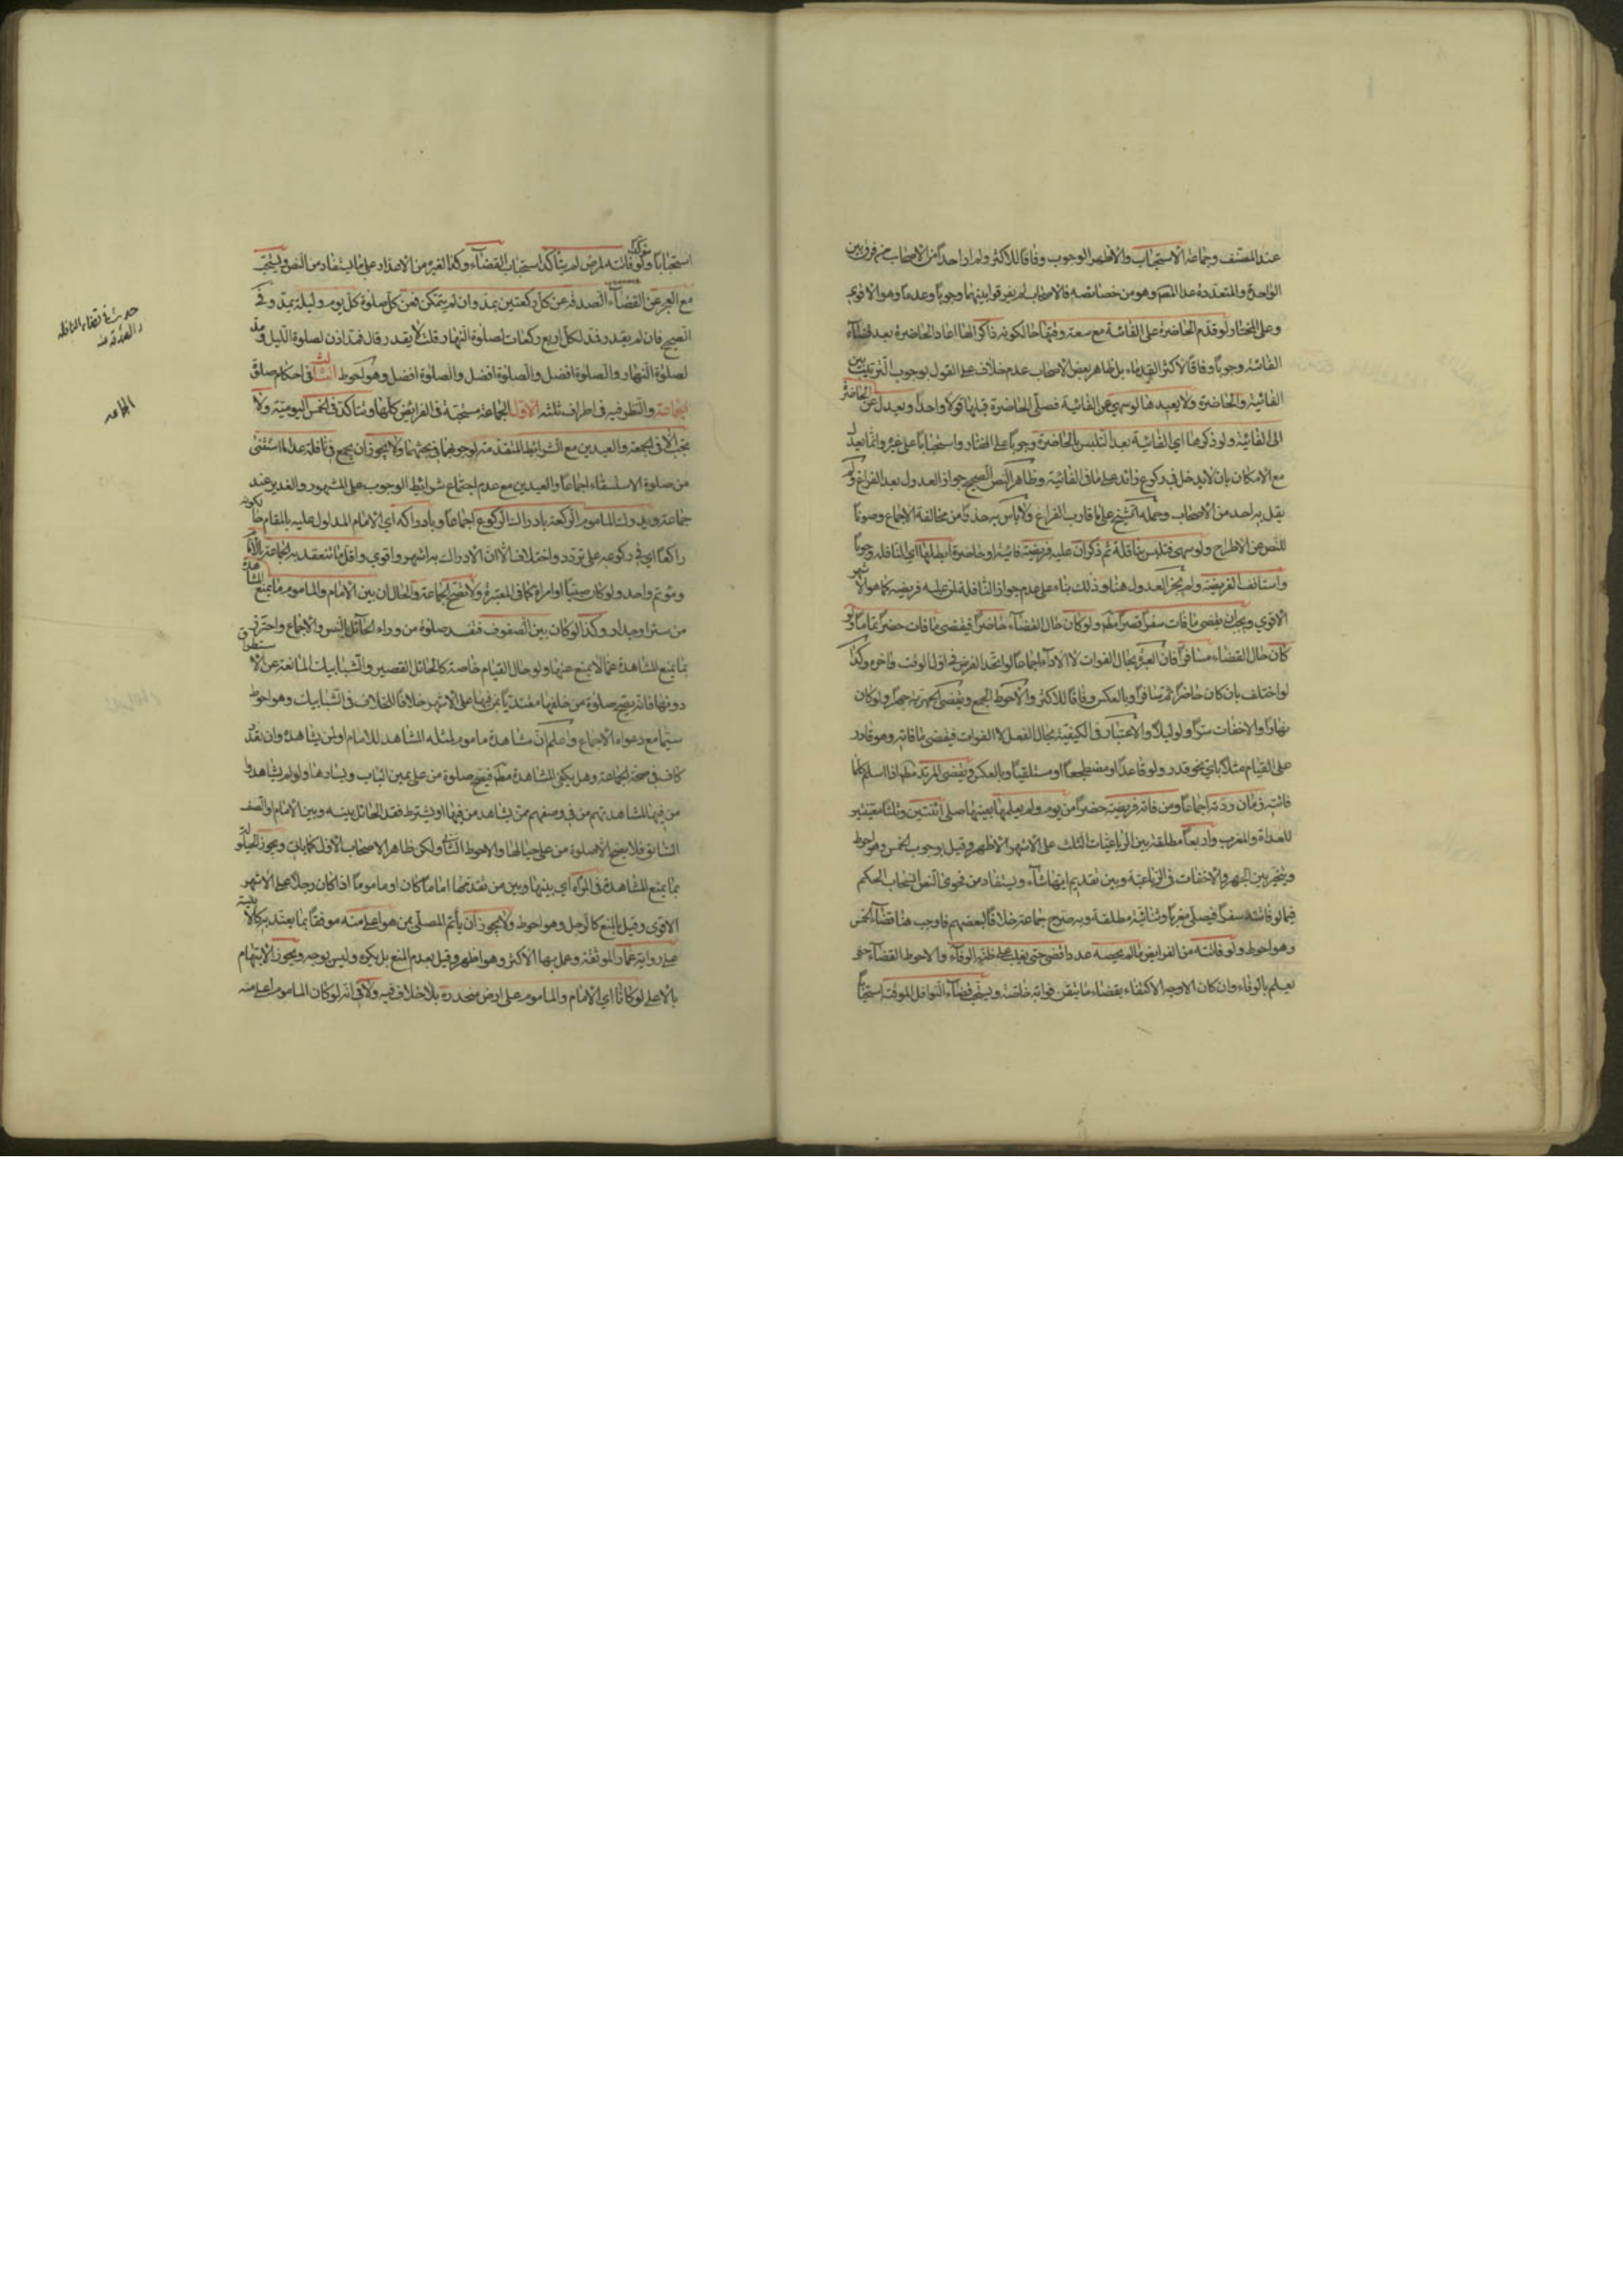 عند المصنف وجماعة الاستحباب والاظهر الوجوب وفاقا للاكثر ولم ار احدا من الاصحاب من فرق بين
الواحدة والمتعددة عدا المصنف وهو من خصائصه فالاصحاب لم يفرقوا بينهما وجوبا وعدما وهو الاقوى
وعلى المختار لو قدم الحاضرة على الفائتة مع سعة وقتها حالكونه ذاكرا لها اعاد الحاضرة بعد قضاء
الفائتة وجوبا وفاقا لاكثر القدماء بل ظاهر بعض الاصحاب عدم خلاف على القول بوجوب الترتيب بين
الفائتة والحاضرة ولا يعيدها لو سهى عن الفائتة فصلى الحاضرة قبلها قولا واحدا ويعدل عن الحاضرة
الى الفائتة ولو ذكرها اي الفائتة بعد التلبس بالحاضرة وجوبا على المختار واستحبابا على غيره وانما يعدل
مع الامكان بان لا يدخل في ركوع زائد على ما في الفائتة وظاهر النص الصحيح جواز العدول بعد الفراغ ولم
يقل به احد من الاصحاب وحمله الشيخ على ما قارب الفراغ ولا باس به حذرا من مخالفة الاجماع وصونا
للنص عن الاطراح ولو سهى فتلبس بنافلة ثم ذكر ان عليه فريضة فائتة او حاضرة ابطلها اي النافلة وجوبا
واستانف الفريضة ولم يجز العدول هنا وذلك بناء على عدم جواز النافلة لمن عليه فريضة كما هو الاشهر
الاقوى ويجب ان يقضى ما فات سفرا قصرا مطلقا ولو كان حال القضاء حاضرا فيقضى ما فات حضرا تماما ولو
كان حال القضاء مسافرا فان العبرة بحال الفوات لا الاداء اجماعا لو اتحد الفرض في اول الوقت واخره وكذا
لو اختلف بان كان حاضرا ثم سافر او بالعكس وفاقا للاكثر والاحوط الجمع ويقضى الجهرية جهرا ولو كان
نهارا والاخفات سرا ولو ليلا والاعتبار في الكيفية بحال الفعل لا الفوات فيقضى ما فاته وهو قادر
على القيام مثلا باي نحو قدر ولو قاعدا او مضطجعا او مستلقيا وبالعكس ويقضى المرتد مطلقا اذا اسلم كلما
فاتته زمان ردته اجماعا ومن فاته فريضة حضرا من يوم ولم يعلمها بعينها صلى اثنتين وثلثا معينتين
للغداة والمغرب واربعا مطلقة بين الرباعيات الثلث على الاشهر الاظهر وقيل بوجوب الخمس وهو احوط
ويتخير بين الجهر والاخفات في الرباعية وبين تقديم ايها شاء ويستفاد من فحوى النص انسحاب الحكم
فيما لو فاتته سفرا فيصلى مغربا وثنائية مطلقة وبه صرح جماعة خلافا لبعضهم فاوجب هنا قضاء الخمس
وهو احوط ولو فاتته من الفرايض ما لم يحصه عددا قضى حتى يغلب على ظنه الوفاء والاحوط القضاء حتى
يعلم بالوفاء وان كان الاوجه الاكتفاء بقضاء ما تيقن فواته خاصة ويستحب قضاء النوافل الموقتة استحبابا
استحبابا مؤكدا ولو فاتته لمرض لم يتاكد استحباب القضاء وكذا لغيره من الاعذار على ما يستفاد من النص ويستحب
مع العجز عن القضاء الصدقة عن كل ركعتين بمد وان لم يتمكن فعن كل صلوة كل يوم وليلة بمد وفي
الصحيح فان لم يقدر فمد لكل اربع ركعات لصلوة النهار قلت لا يقدر قال فمد اذن لصلوة الليل ومد
لصلوة النهار والصلوة افضل والصلوة افضل والصلوة افضل وهو احوط الثالث في احكام صلوة
الجماعة والنظر فيه في اطراف ثلثة الاول الجماعة مستحبة في الفرايض كلها وتتاكد في الخمس اليومية ولا
تجب الا في الجمعة والعيدين مع الشرائط المتقدمة لوجوبهما في بحثهما ولا يجوز ان يجمع في نافلة عدا ما استثنى
من صلوة الاستسقاء اجماعا والعيدين مع عدم اجتماع شرائط الوجوب على المشهور والغدير عند
جماعة ويدرك المأموم الركعة بادراك الركوع اجماعا وبادراكه اي الامام المدلول عليه بالمقام حالكونه
راكعا اي في ركوعه على تردد واختلاف الا ان الادراك به اشهر واقوى واقل ما تنعقد به الجماعة الامام
ومؤتم واحد ولو كان صبيا او امراة كما في المعتبرة ولا تصح الجماعة والحال ان بين الامام والماموم ما يمنع المشاهدة
من ستر او جدار وكذا لو كان بين الصفوف فتفسد صلوة من وراء الحائل بالنص والاجماع واحترز
بما يمنع المشاهدة عما لا يمنع عنها ولو حال القيام خاصة كالحائل القصير والشبابيك المانعة عن الاستطراق
دونها فانه يصح صلوة من خلفها مقتديا بمن فيها على الاشهر خلافا للخلاف في الشبابيك وهو احوط
سيما مع دعواه الاجماع واعلم ان مشاهدة ماموم لمثله المشاهد للامام او لمن يشاهده وان تعدد
كاف في صحة الجماعة وهل يكفى المشاهدة مطلقا فيصح صلوة من على يمين الباب ويسارها ولو لم يشاهدوا
من فيها لمشاهدتهم من في صفهم ممن يشاهد من فيها او يشترط فقد الحائل بينه وبين الامام او الصف
السابق فلا يصح الا صلوة من على حيالها والاحوط الثانى ولكن ظاهر الاصحاب الاول كما ياتى ويجوز الحيلولة
بما يمنع المشاهدة في المرأة اي بينها وبين من تقدمها اماما كان او ماموما اذا كان رجلا على الاشهر
الاقوى وقيل بالمنع كالرجل وهو احوط ولا يجوز ان يأتم المصلى بمن هو اعلى منه موقفا بما يعتد به كالابنية
على رواية عمار الموثقة وعمل بها الاكثر وهو اظهر وقيل بعدم المنع بل يكره وليس بوجه ويجوز الايتمام
بالاعلى لو كانا اي الامام والماموم على ارض منحدرة بلا خلاف فيه ولا في انه لو كان الماموم اعلى منه
حديث في قضاء النافلة
والصدقة عنه
الجماعه